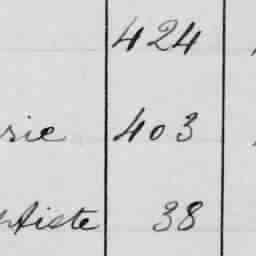 424
rie 403
tiste 38